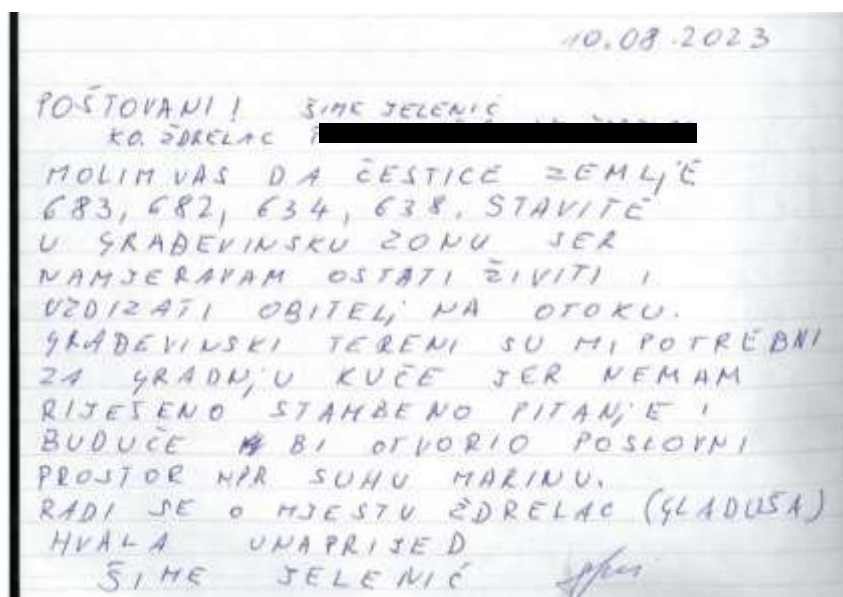 10.08.2023
POŠTOVANI! ŠIME JELENIĆ
KO. ŽDRELAC
MOLIM VAS DA ČESTICE ZEMLJE
683, 682, 634, 638. STAVITE
U GRAĐEVINSKU ZONU JER
NAMJERAVAM OSTATI ŽIVITI I
UZDIZATI OBITELJ NA OTOKU.
GRAĐEVINSKI TERENI SU MI POTREBNI
ZA GRADNJU KUČE JER NEMAM
RIJEŠENO STAMBENO PITANJE I
BUDUČE BI OTVORIO POSLOVNI
PROSTOR NPR SUHU MARINU.
RADI SE O MJESTU ŽDRELAC (GLADUŠA)
HVALA UNAPRIJED
ŠIME JELENIĆ